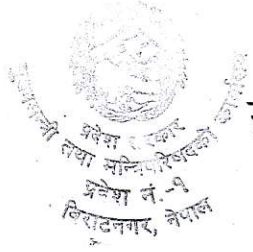 प्रदेश सरकार
मुख्यमन्त्री तथा मन्त्रिपरिषद्को कार्यालय
प्रदेश नं.-१
विराटनगर, नेपाल